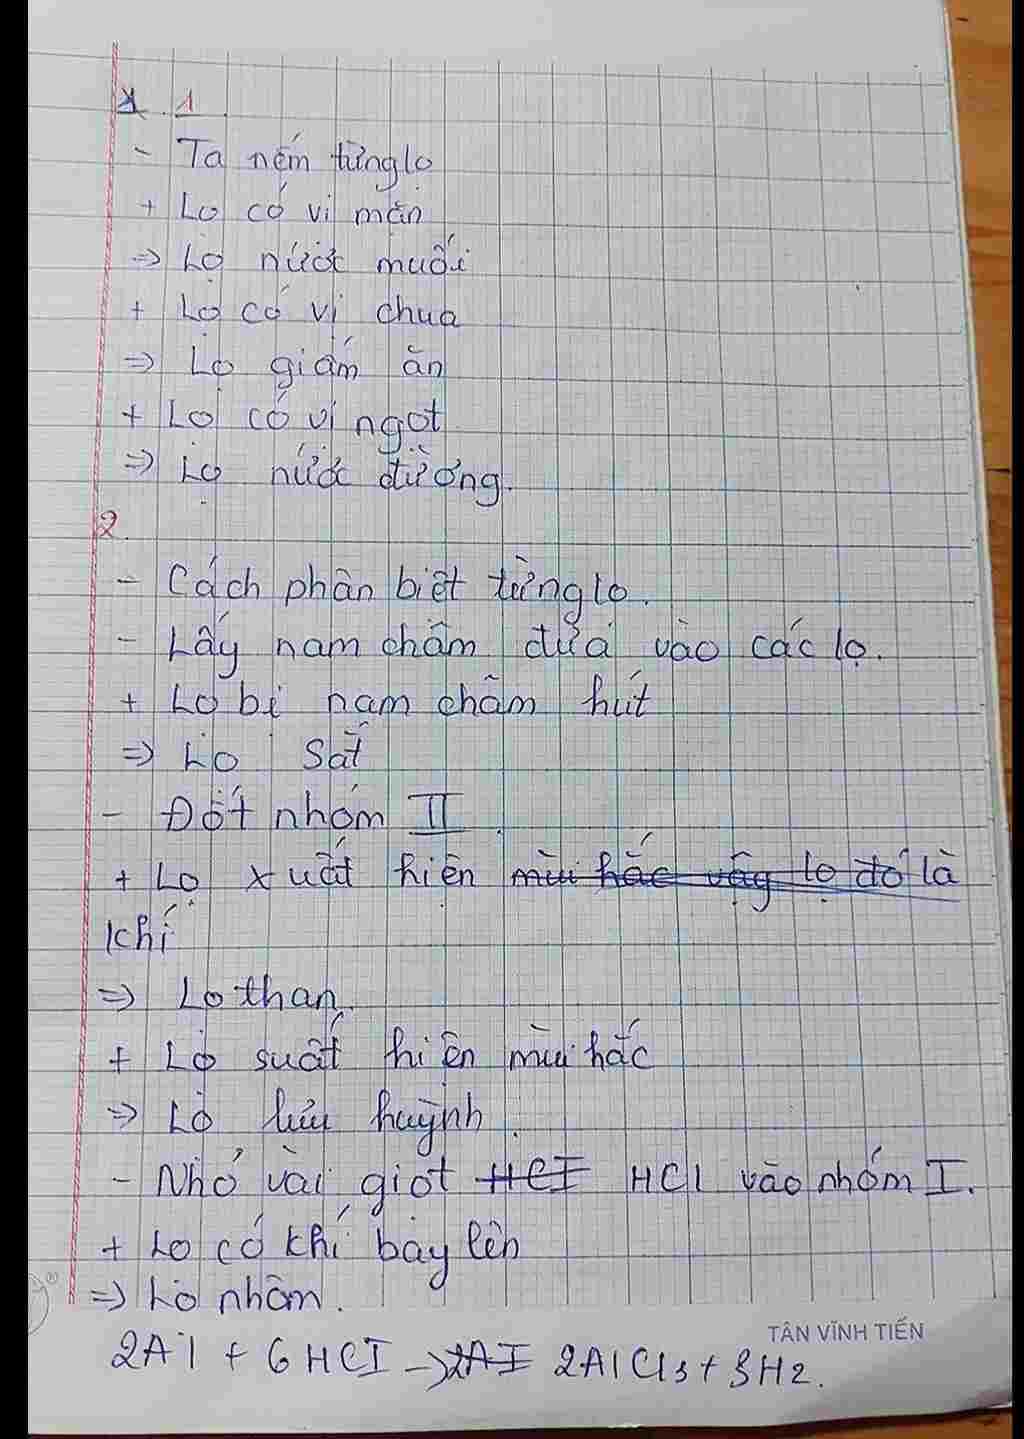 1
- Ta nếm từng lọ
+ Lọ có vị mặn
=> Lọ nước muối
+ Lọ có vị chua
=> Lọ giấm ăn
+ Lọ có vị ngọt
=> Lọ nước đường.
2.
- Cách phân biệt từng lọ.
- Lấy nam châm đưa vào các lọ.
+ Lọ bị nam châm hút
=> Lọ Sắt
- Đốt nhóm II
+ Lọ xuất hiện mùi hắc vậy lọ đó là
khí
=> Lọ than.
+ Lọ suất hiện mùi hắc
=> Lọ lưu huỳnh.
- Nhỏ vài giọt HCI HCl vào nhóm I.
+ Lọ có khí bay lên
=> Lọ nhôm.
TÂN VĨNH TIẾN
2Al + 6HCI -> 2AI 2AlCl3 + 3H2.